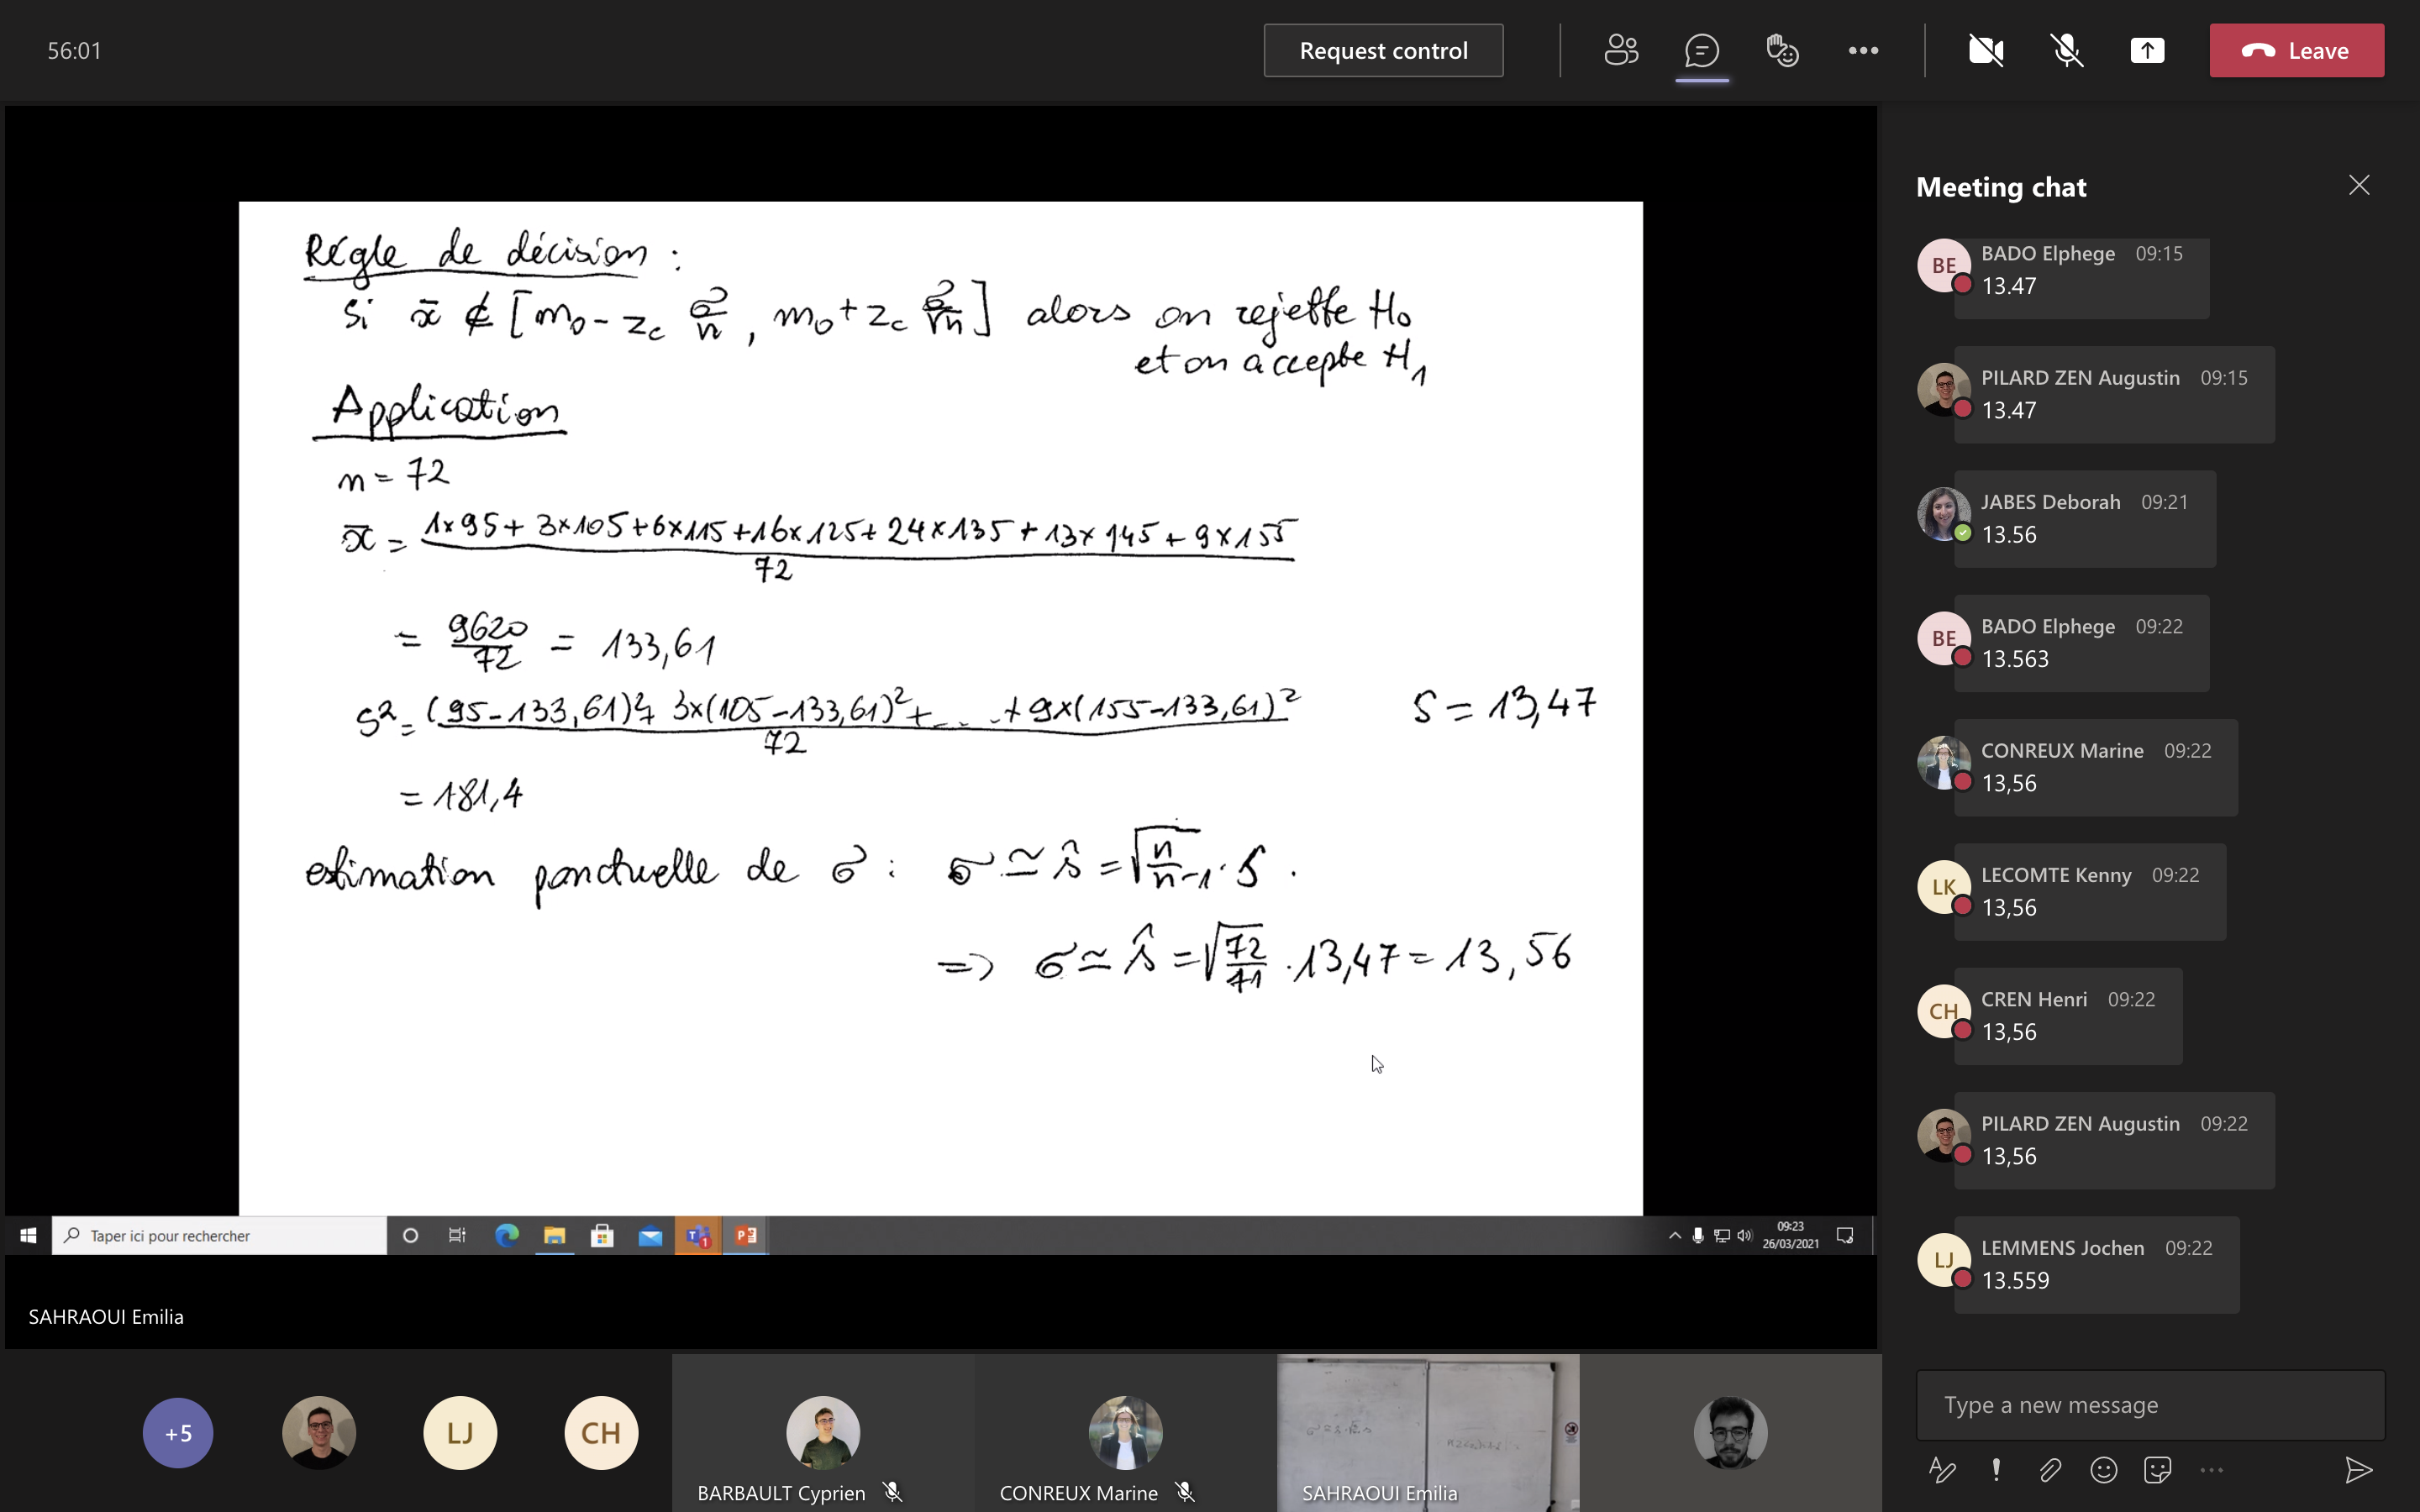 56:01
Request control
Leave
Règle de décision :
si x̄ ∉ [m₀ - z_c σ/n , m₀ + z_c σ/√n] alors on rejette H₀
et on accepte H₁
Application
n = 72
x̄ = (1×95 + 3×105 + 6×115 + 16×125 + 24×135 + 13×145 + 9×155) / 72
= 9620/72 = 133,61
s² = ((95-133,61)² + 3×(105-133,61)² + .... + 9×(155-133,61)²) / 72
S = 13,47
= 181,4
estimation ponctuelle de σ : σ ≃ ŝ = √(n/n-1) · S .
=> σ ≃ ŝ = √(72/71) · 13,47 = 13,56
Taper ici pour rechercher
1
09:23
26/03/2021
SAHRAOUI Emilia
+5
LJ
CH
BARBAULT Cyprien
CONREUX Marine
SAHRAOUI Emilia
Meeting chat
BE
BADO Elphege 09:15
13.47
PILARD ZEN Augustin 09:15
13.47
JABES Deborah 09:21
13.56
BE
BADO Elphege 09:22
13.563
CONREUX Marine 09:22
13,56
LK
LECOMTE Kenny 09:22
13,56
CH
CREN Henri 09:22
13,56
PILARD ZEN Augustin 09:22
13,56
LJ
LEMMENS Jochen 09:22
13.559
Type a new message